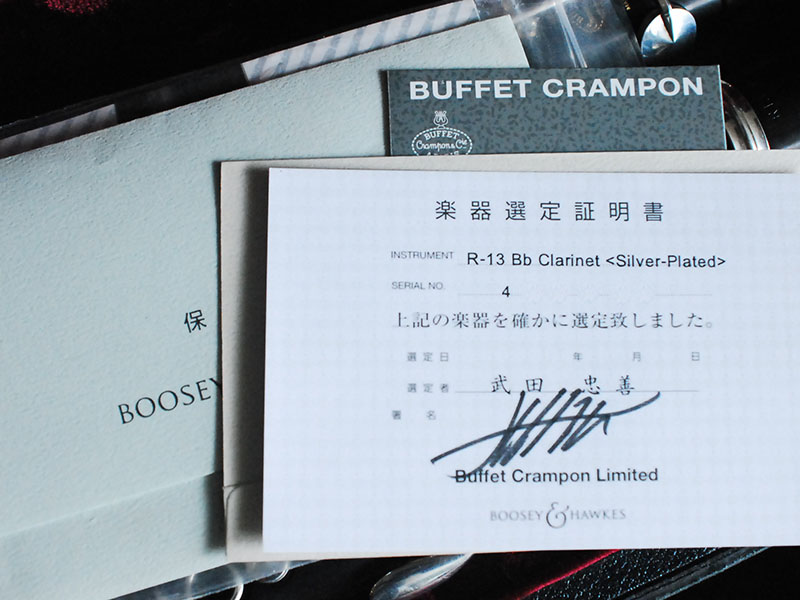 BUFFET CRAMPON
BUFFET
Crampon & Cie
保
BOOSEY
楽器選定証明書
INSTRUMENT R-13 Bb Clarinet <Silver-Plated>
SERIAL NO. 4
上記の楽器を確かに選定致しました。
選定日 年 月 日
選定者 武田 忠善
署名
Buffet Crampon Limited
BOOSEY & HAWKES